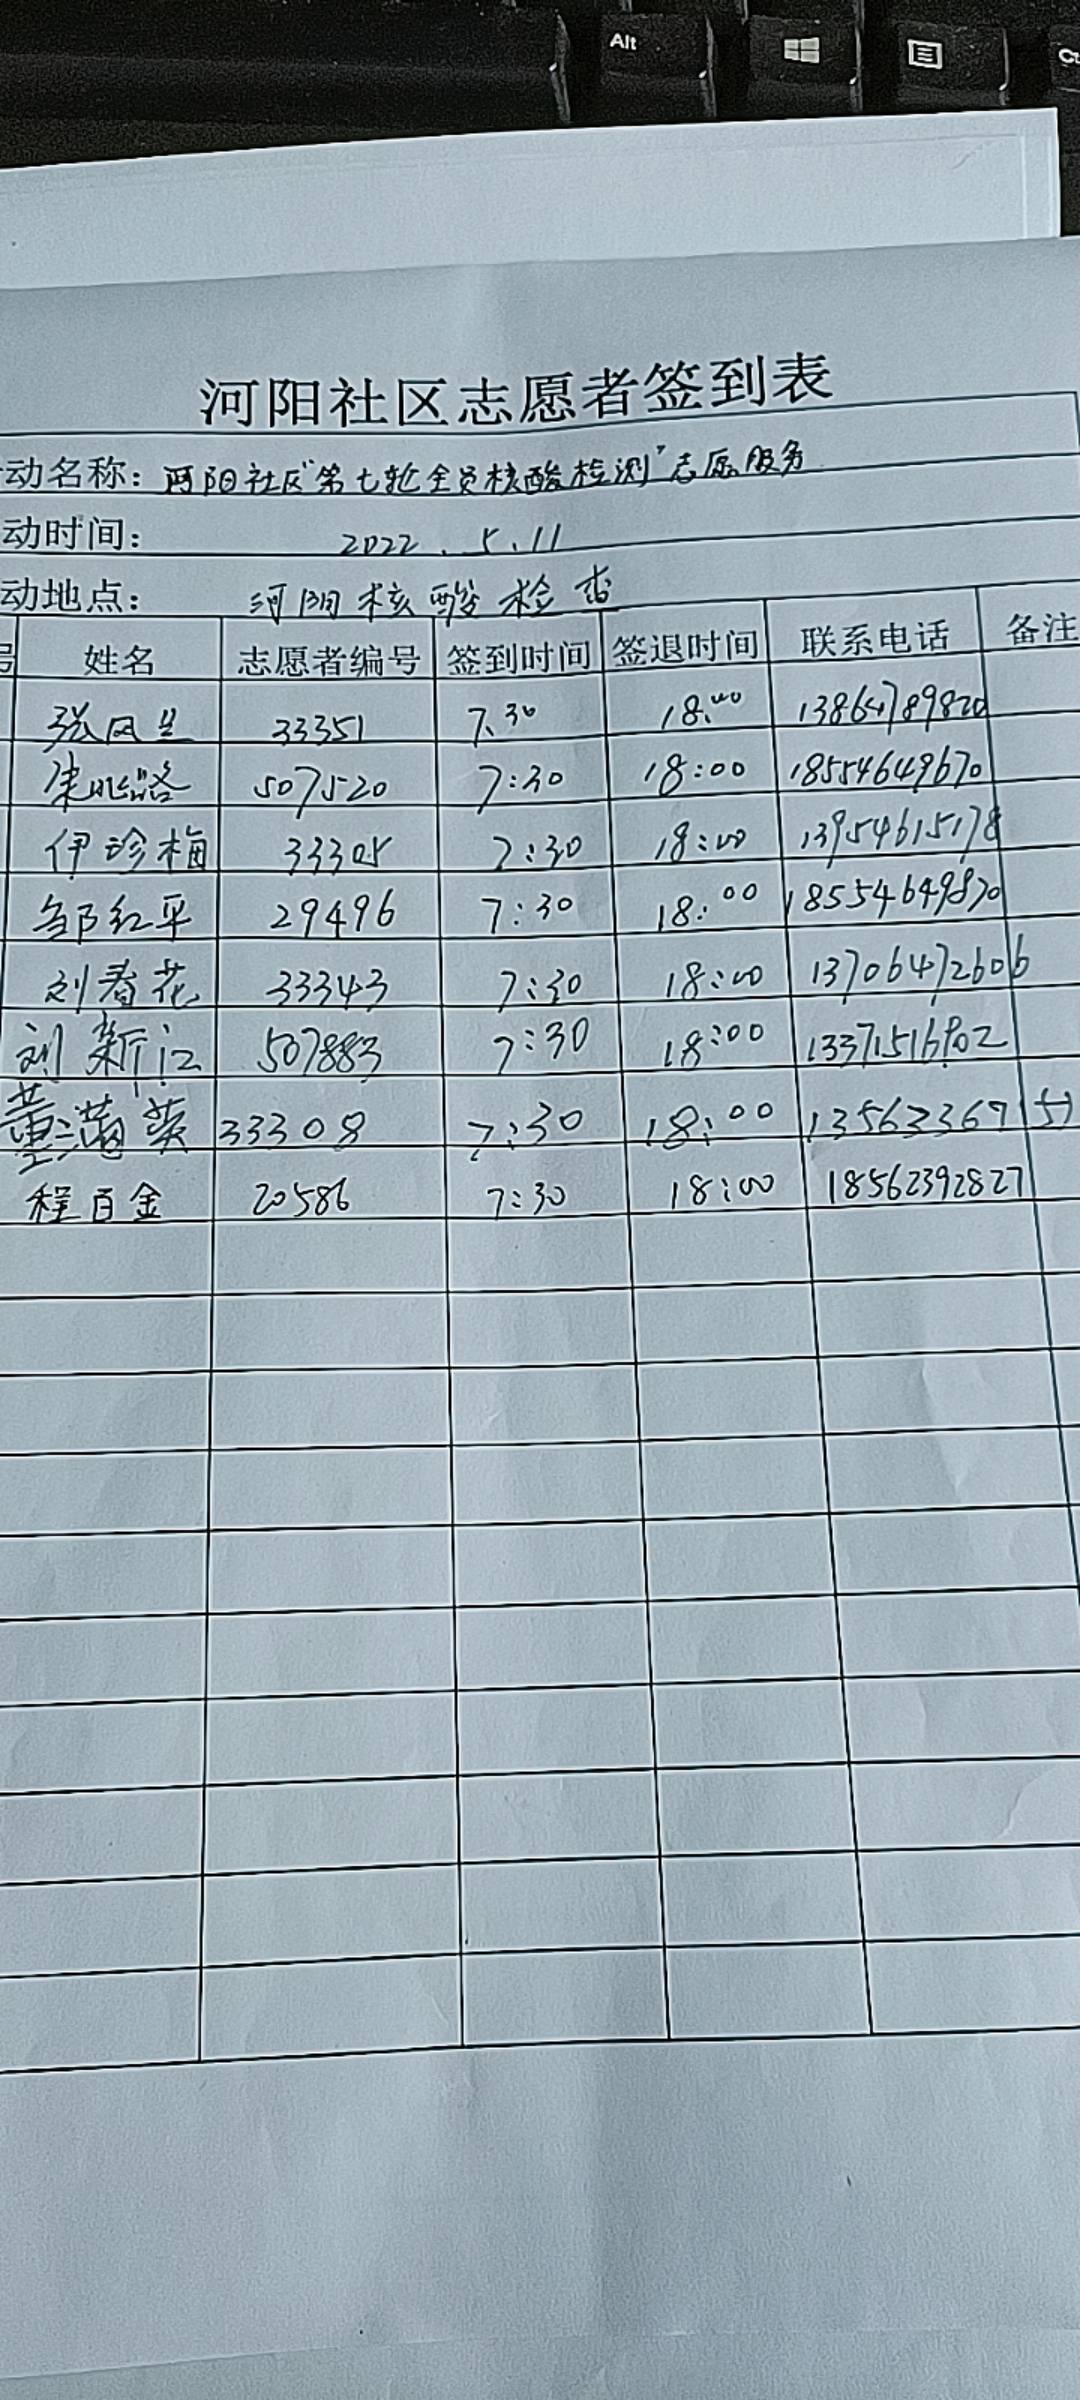 Alt
河阳社区志愿者签到表
动名称：河阳社区"第七轮全员核酸检测"志愿服务
动时间： 2022.5.11
动地点： 河阳核酸检查
号 姓名 志愿者编号 签到时间 签退时间 联系电话 备注
张凤兰 33351 7:30 18:00 13864789820
朱 507520 7:30 18:00 18554649670
伊珍梅 33305 7:30 18:00 13954615178
邹红平 29496 7:30 18:00 18554649870
刘春花 33343 7:30 18:00 13706472606
刘新江 507883 7:30 18:00 13371516802
董满英 33308 7:30 18:00
程百金 20586 7:30 18:00 18562392827